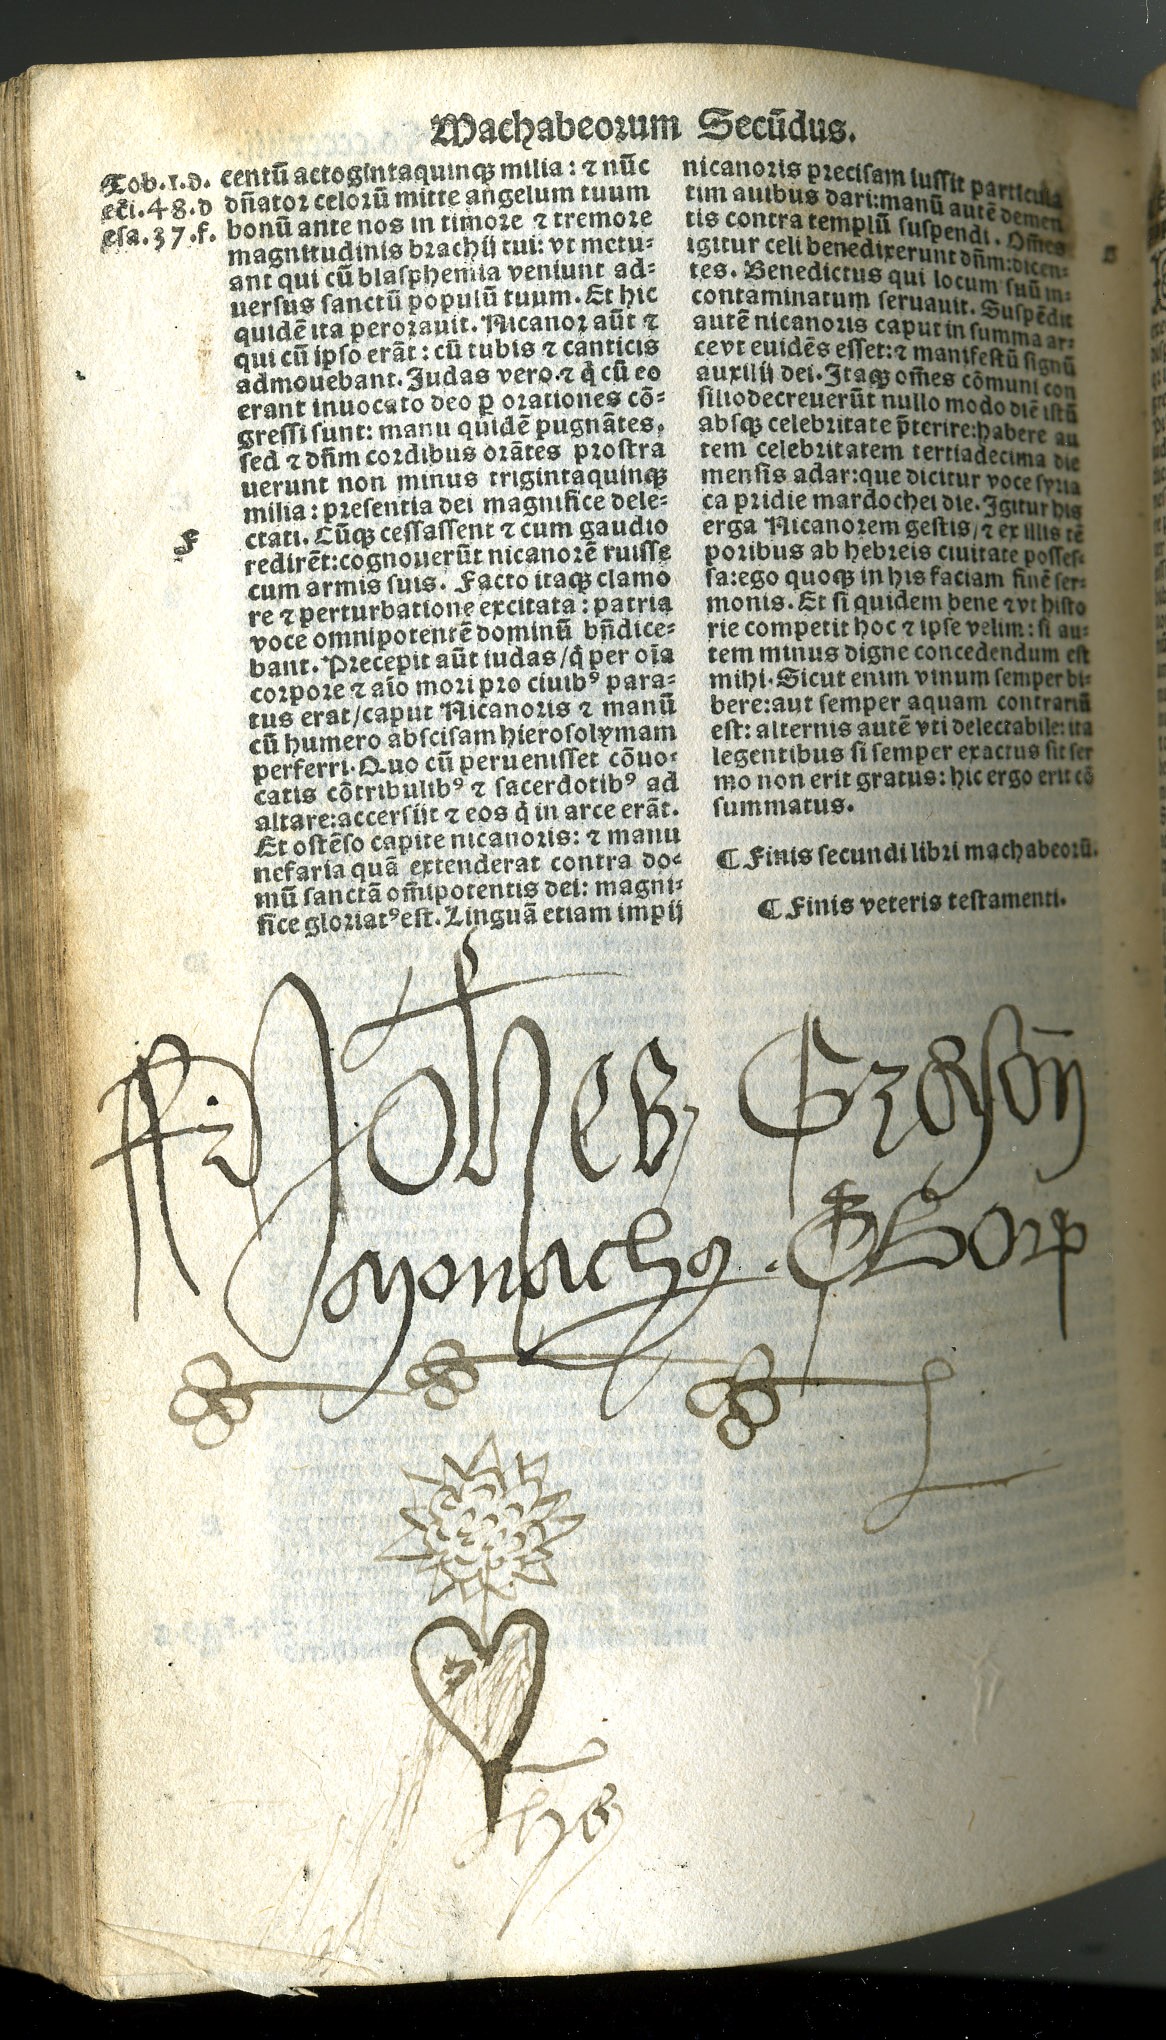 Machabeorum Secūdus.
Tob.1.d.
eccī.48.d
esa.37.f.
centū actogintaquinqȝ milia: ⁊ nūc
dn̄ator celorū mitte angelum tuum
bonū ante nos in timore ⁊ tremore
magnitudinis brachij tui: vt metu-
ant qui cū blasphemia veniunt ad-
uersus sanctū populū tuum. Et hic
quidē ita perorauit. Nicanor aūt ⁊
qui cū ipso erāt: cū tubis ⁊ canticis
admouebant. Judas vero.⁊ q̄ cū eo
erant inuocato deo ꝑ orationes cō-
gressi sunt: manu quidē pugnātes,
sed ⁊ dn̄m cordibus orātes prostra
uerunt non minus trigintaquinqȝ
milia: presentia dei magnifice dele-
ctati. Cūqȝ cessassent ⁊ cum gaudio
F
redirēt:cognouerūt nicanorē ruisse
cum armis suis. Facto itaqȝ clamo
re ⁊ perturbatione excitata: patria
voce omnipotentē dominū bn̄dice-
bant. Precepit aūt iudas/q̄ per oīa
corpore ⁊ aīo mori pro ciuibꝰ para-
tus erat/caput Nicanoris ⁊ manū
cū humero abscisam hierosolymam
perferri. Quo cū peruenisset cōuo-
catis cōtribulibꝰ ⁊ sacerdotibꝰ ad
altare:accersiit ⁊ eos q̄ in arce erāt.
Et ostēso capite nicanoris: ⁊ manu
nefaria quā extenderat contra do-
mū sanctā om̄ipotentis dei: magni-
fice gloriatꝰ est. Linguā etiam impij
nicanoris precisam iussit particula
tim auibus dari:manū autē demen
tis contra templū suspendi. Om̄es
igitur celi benedixerunt dn̄m:dicen-
tes. Benedictus qui locum suū in-
contaminatum seruauit. Suspēdit
autē nicanoris caput in summa ar-
ce vt euidēs esset:⁊ manifestū signū
auxilij dei. Itaqȝ om̄es cōmuni con
silio decreuerūt nullo modo diē istū
absqȝ celebritate p̄terire:habere au
tem celebritatem tertiadecima die
mensis adar:que dicitur voce syria
ca pridie mardochei die. Igitur his
erga Nicanorem gestis/⁊ ex illis tē
poribus ab hebreis ciuitate posses-
sa:ego quoqȝ in his faciam finē ser-
monis. Et si quidem bene ⁊ vt histo
rie competit hoc ⁊ ipse velim: si au-
tem minus digne concedendum est
mihi. Sicut enim vinum semper bi-
bere:aut semper aquam contrariū
est: alternis autē vti delectabile: ita
legentibus si semper exactus sit ser
mo non erit gratus: hic ergo erit cō
summatus.
¶ Finis secundi libri machabeorū.
¶ Finis veteris testamenti.
monachꝰ